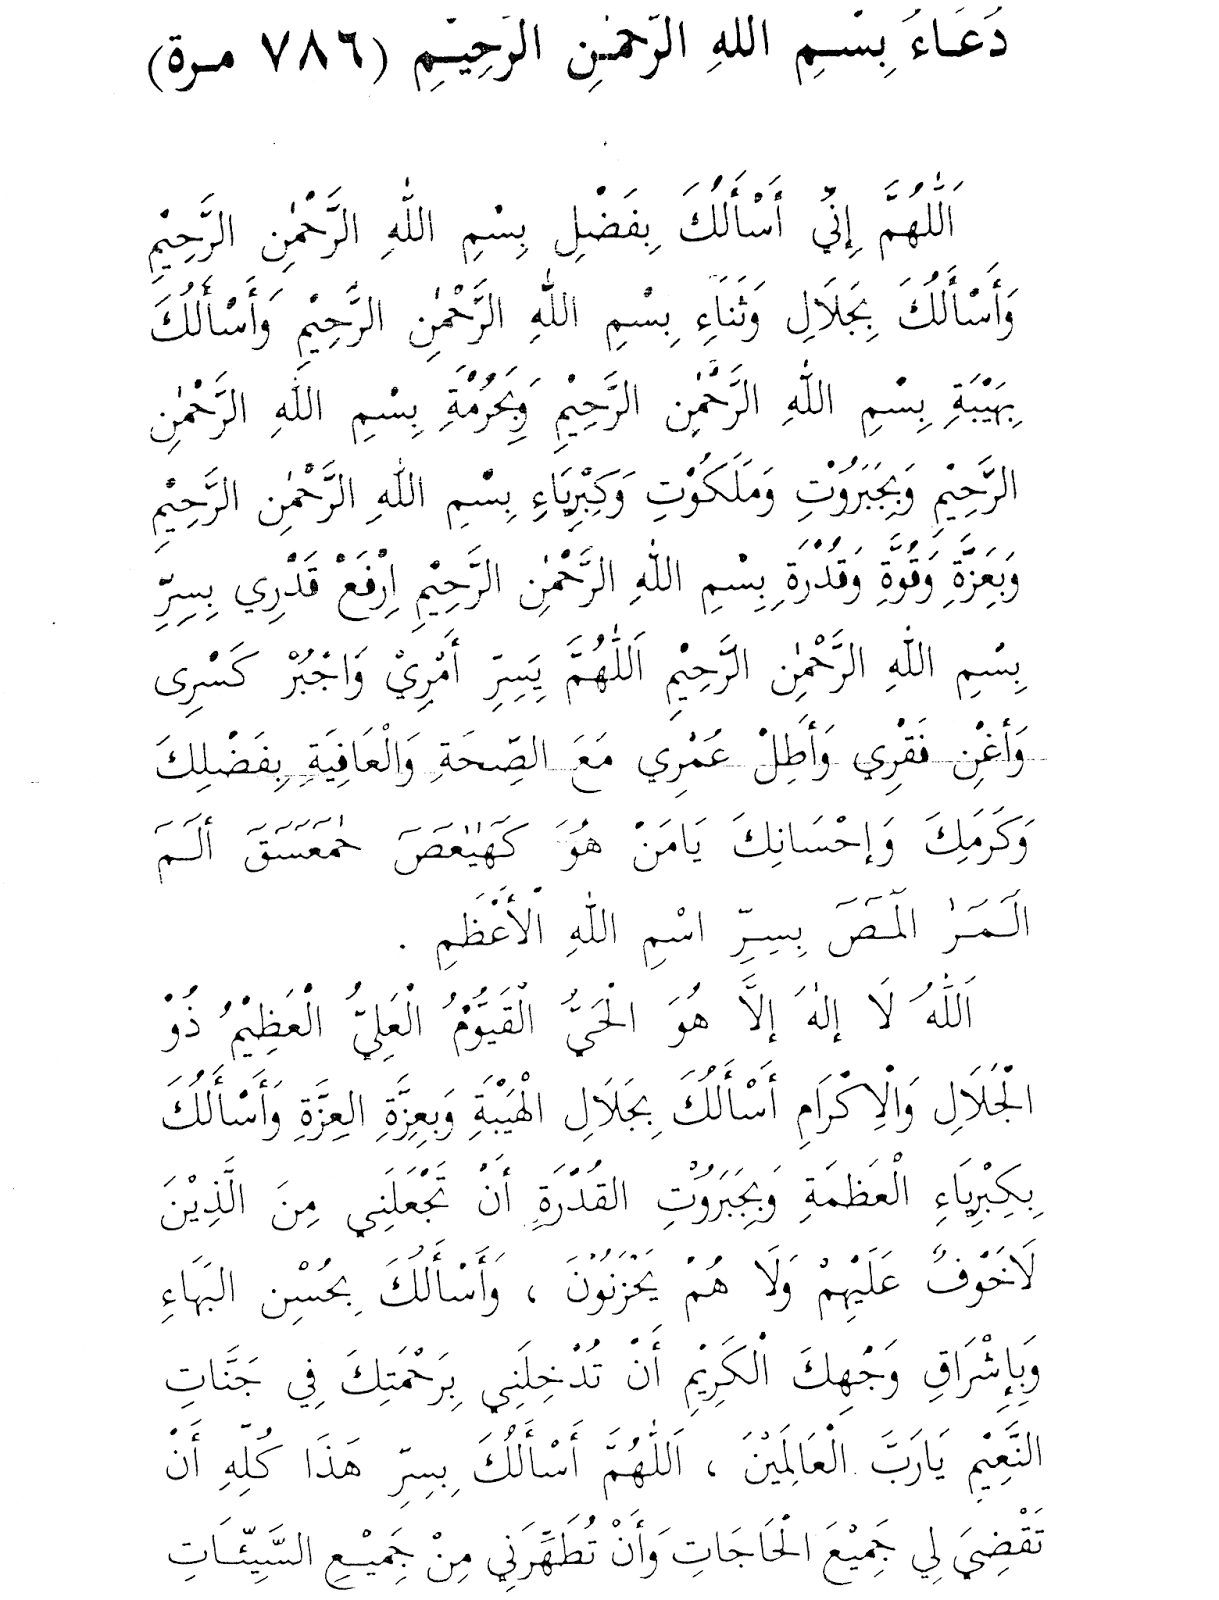 دُعَاءُ بِسْمِ اللهِ الرَّحْمٰنِ الرَّحِيْمِ (٧٨٦ مرة)
اَللّٰهُمَّ إِنِّي أَسْأَلُكَ بِفَضْلِ بِسْمِ اللّٰهِ الرَّحْمٰنِ الرَّحِيْمِ
وَأَسْأَلُكَ بِجَلَالِ وَثَنَاءِ بِسْمِ اللّٰهِ الرَّحْمٰنِ الرَّحِيْمِ وَأَسْأَلُكَ
بِهَيْبَةِ بِسْمِ اللّٰهِ الرَّحْمٰنِ الرَّحِيْمِ وَبِحُرْمَةِ بِسْمِ اللّٰهِ الرَّحْمٰنِ
الرَّحِيْمِ وَبِجَبَرُوْتِ وَمَلَكُوْتِ وَكِبْرِيَاءِ بِسْمِ اللّٰهِ الرَّحْمٰنِ الرَّحِيْمِ
وَبَعِزَّةِ وَقُوَّةِ وَقُدْرَةِ بِسْمِ اللّٰهِ الرَّحْمٰنِ الرَّحِيْمِ اِرْفَعْ قَدْرِي بِسِرِّ
بِسْمِ اللّٰهِ الرَّحْمٰنِ الرَّحِيْمِ اَللّٰهُمَّ يَسِرِّ أَمْرِيْ وَاجْبُرْ كَسْرِى
وَأغْنِ فَقْرِي وَأَطِلْ عُمْرِي مَعَ الصِّحَةِ وَالْعَافِيَةِ بِفَضْلِكَ
وَكَرَمَكِ وَإحْسَانِكَ يَامَنْ هُوَ كَهٰيٰعَصَ حٰمَعَسَقَ ألَـمَ
الَـمَـرٰ الَمَـصَ بِسِرِّ اسْمِ اللّٰهِ الْأَعْظَمِ .
اَللّٰهُ لَا إلٰهَ إلَّا هُوَ الْحَيُّ الْقَيُّوْمُ الْعَلِيُّ الْعَظِيْمُ ذُوْ
الْجَلَالِ وَالْاِكْرَامِ أَسْأَلُكَ بِجَلَالِ الْهَيْبَةِ وَبِعِزَّةِ العِزَّةِ وَأَسْأَلُكَ
بِكِبْرِيَاءِ الْعَظَمَةِ وَبِجَبَرُوْتِ القُدْرَةِ أَنْ تَجْعَلَنِي مِنَ الَّذِيْنَ
لَاخَوْفٌ عَلَيْهِمْ وَلَا هُمْ يَحْزَنُوْنَ ، وَأَسْأَلُكَ بِحُسْنِ البَهَاءِ
وَبِإِشْرَاقِ وَجْهِكَ الْكَرِيْمِ أَنْ تُدْخِلَنِي بِرَحْمَتِكَ فِي جَنَّاتِ
النَّعِيْمِ يَارَبَّ الْعَالَمِيْنَ ، اَللّٰهُمَّ أَسْأَلُكَ بِسِرِّ هَذَا كُلِّهِ أَنْ
تَقْضِيَ لِي جَمِيْعَ الْحَاجَاتِ وَأَنْ تُطَهِّرَنِي مِنْ جَمِيْعِ السَّيِّئَاتِ